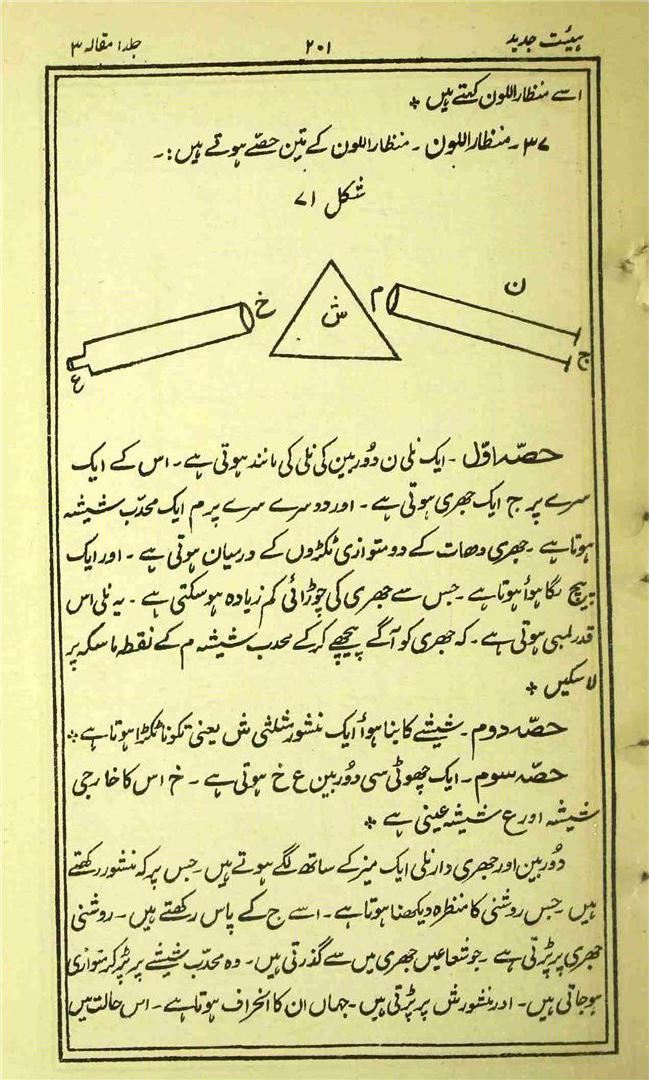 ہیئت جدید ۲۰۱ جلد۱ مقالہ ۳
اسے منظار اللون کہتے ہیں *
۳۷۔ منظار اللون ۔ منظار اللون کے تین حصّے ہوتے ہیں :۔
شکل ۷۱
ن
م
ش
خ
ج
ع
حصّہ اوّل ۔ ایک نلی ن دُوربین کی نلی کی مانند ہوتی ہے ۔ اس کے ایک
سرے پر ج ایک جھری ہوتی ہے ۔ اور دوسرے سرے پر م ایک محدّب شیشہ
ہوتا ہے ۔ جھری دھات کے دو متوازی ٹکڑوں کے درمیان ہوتی ہے ۔ اور ایک
پیچ لگا ہوُا ہوتا ہے ۔ جس سے جھری کی چوڑائی کم زیادہ ہو سکتی ہے ۔ یہ نلی اس
قدر لمبی ہوتی ہے ۔ کہ جھری کو آگے پیچھے کرکے محدب شیشہ م کے نقطہ ماسکہ پر
لا سکیں *
حصّہ دوم ۔ شیشے کا بنا ہوُا ایک منشور مثلثی ش یعنی تکونا ٹکڑا ہوتا ہے *
حصّہ سوم ۔ ایک چھوٹی سی دُوربین ع خ ہوتی ہے ۔ خ اس کا خارجی
شیشہ اور ع شیشہ عینی ہے *
دُوربین اور جھری دار نلی ایک میز کے ساتھ لگے ہوتے ہیں ۔ جس پر کہ منشور رکھتے
ہیں ۔ جس روشنی کا منظرہ دیکھنا ہوتا ہے ۔ اسے ج کے پاس رکھتے ہیں ۔ روشنی
جھری پر پڑتی ہے ۔ جو شعاعیں جھری میں سے گذرتی ہیں ۔ وہ محدّب شیشے پر پڑ کر متوازی
ہو جاتی ہیں ۔ اور منشور ش پر پڑتی ہیں ۔ جہاں ان کا انحراف ہوتا ہے ۔ اس حالت میں